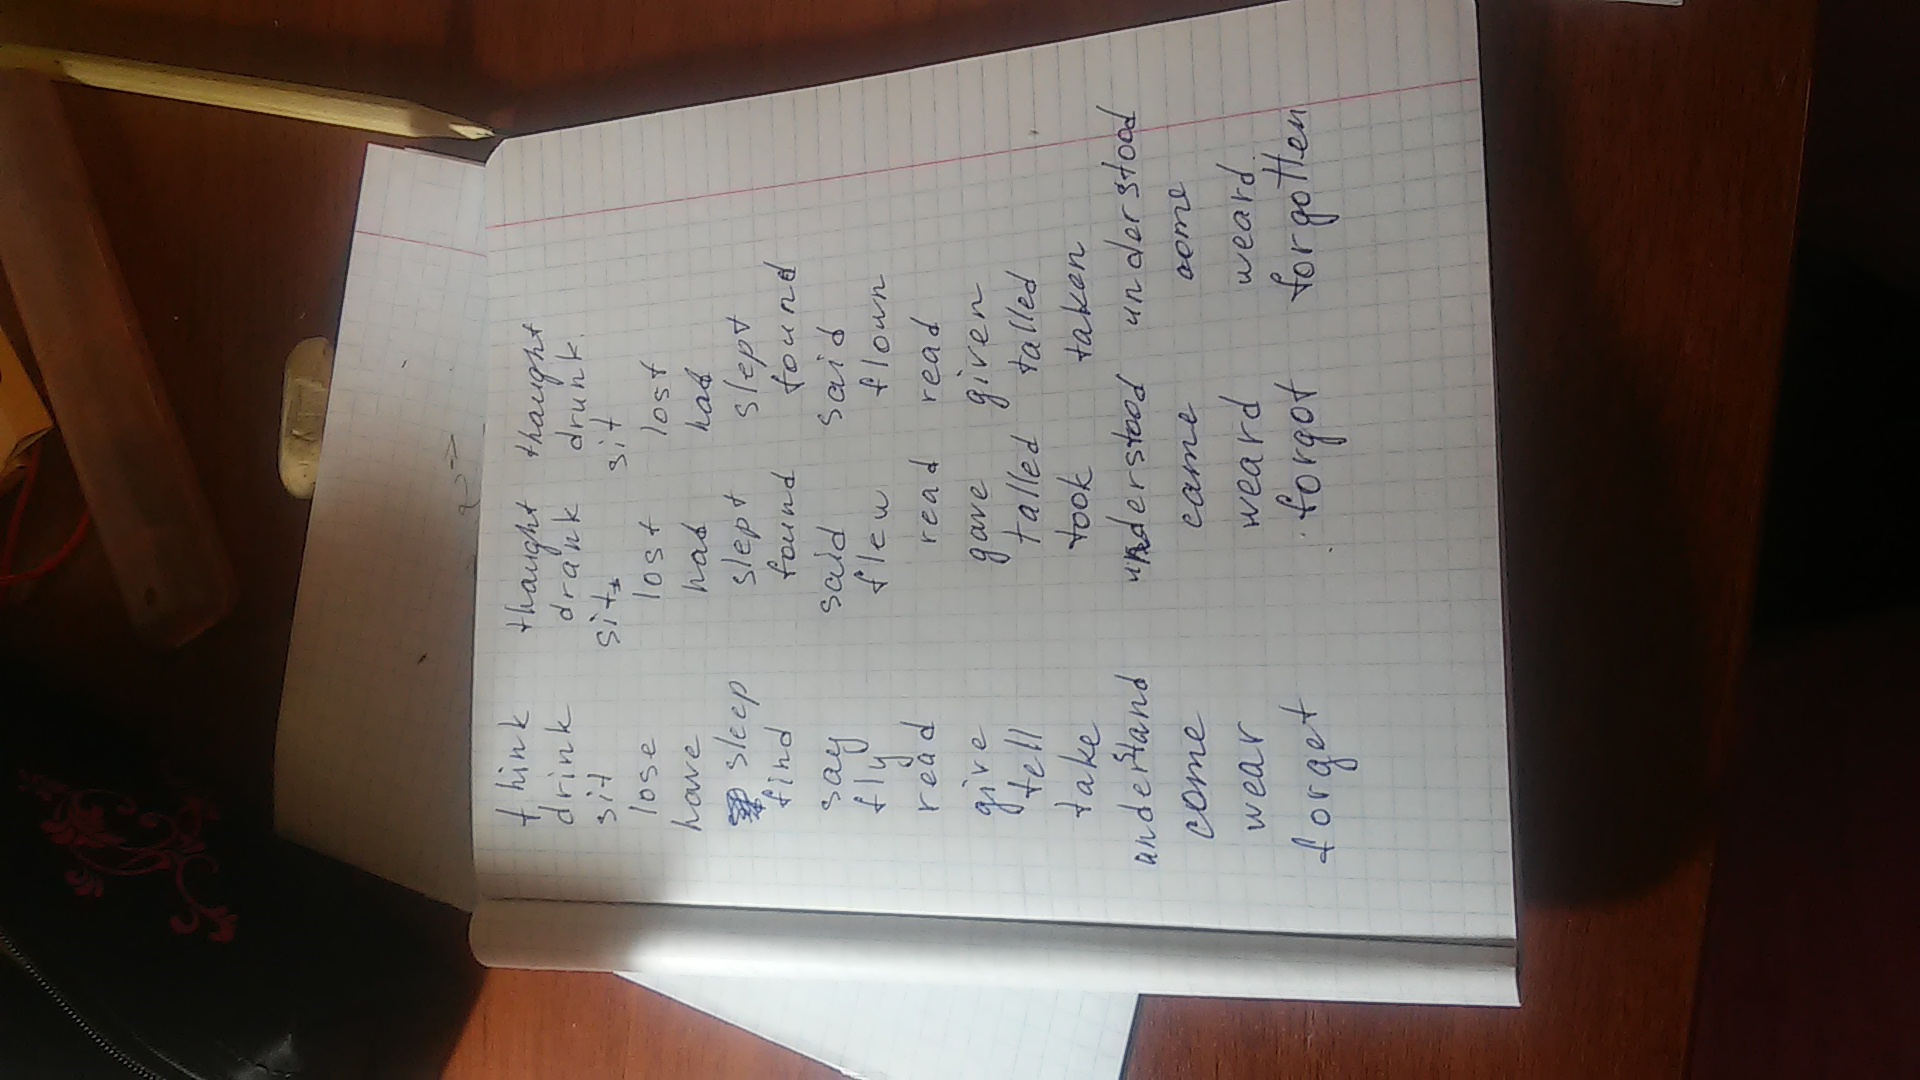 think thaught thaught
drink drank drunk.
sit sit sit
lose lost lost
have had had
sleep slept slept
find found found
say said said
fly flew flown
read read read
give gave given
tell talled talled
take took taken
understand understood understood
come came come
wear weard weard
forget forgot forgotten